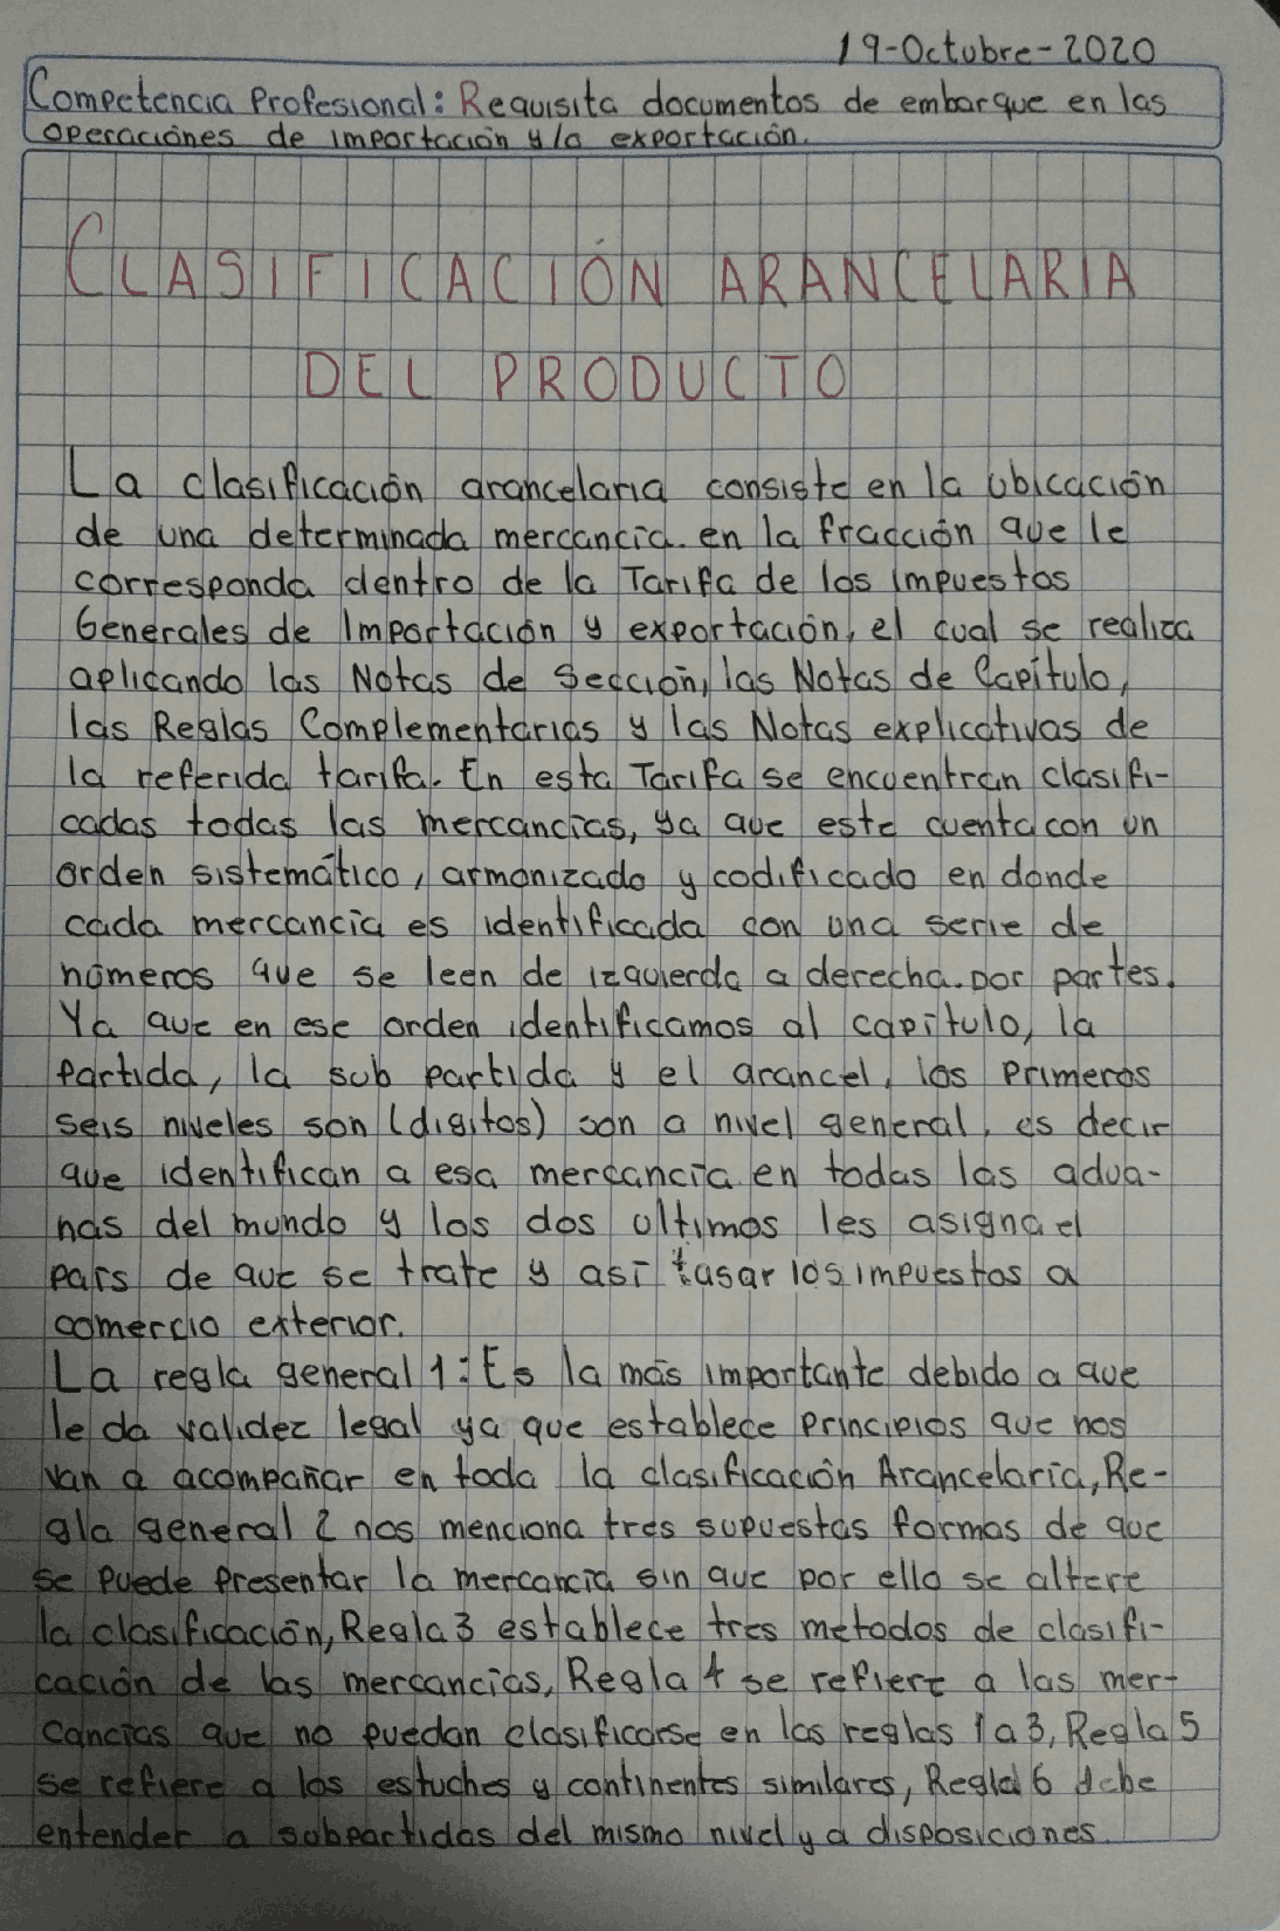 19-Octubre-2020
Competencia Profesional: Requisita documentos de embarque en las
operaciónes de importación y/o exportación.
CLASIFICACIÓN ARANCELARIA
DEL PRODUCTO
La clasificación arancelaria consiste en la ubicación
de una determinada mercancía. en la fracción que le
corresponda dentro de la Tarifa de los impuestos
Generales de Importación y exportación, el cual se realiza
aplicando las Notas de Sección, las Notas de Capítulo,
las Reglas Complementarias y las Notas explicativas de
la referida tarifa. En esta Tarifa se encuentran clasifi-
cadas todas las mercancías, ya que este cuenta con un
orden sistemático, armonizado y codificado en donde
cada mercancía es identificada con una serie de
números que se leen de izquierda a derecha. por partes.
Ya que en ese orden identificamos al capítulo, la
partida, la sub partida y el arancel, los primeros
seis niveles son (digitos) son a nivel general, es decir
que identifican a esa mercancía en todas las adua-
nas del mundo y los dos ultimos les asigna el
país de que se trate y así tasar los impuestos a
comercio exterior.
La regla general 1: Es la más importante debido a que
le da validez legal ya que establece principios que nos
van a acompañar en toda la clasificación Arancelaria, Re-
gla general 2 nos menciona tres supuestas formas de que
se puede presentar la mercancía sin que por ello se altere
la clasificación, Regla 3 establece tres metodos de clasifi-
cación de las mercancías, Regla 4 se refiere a las mer-
cancías que no puedan clasificarse en las reglas 1 a 3, Regla 5
se refiere a los estuches y continentes similares, Regla 6 debe
entender a subpartidas del mismo nivel y a disposiciones.